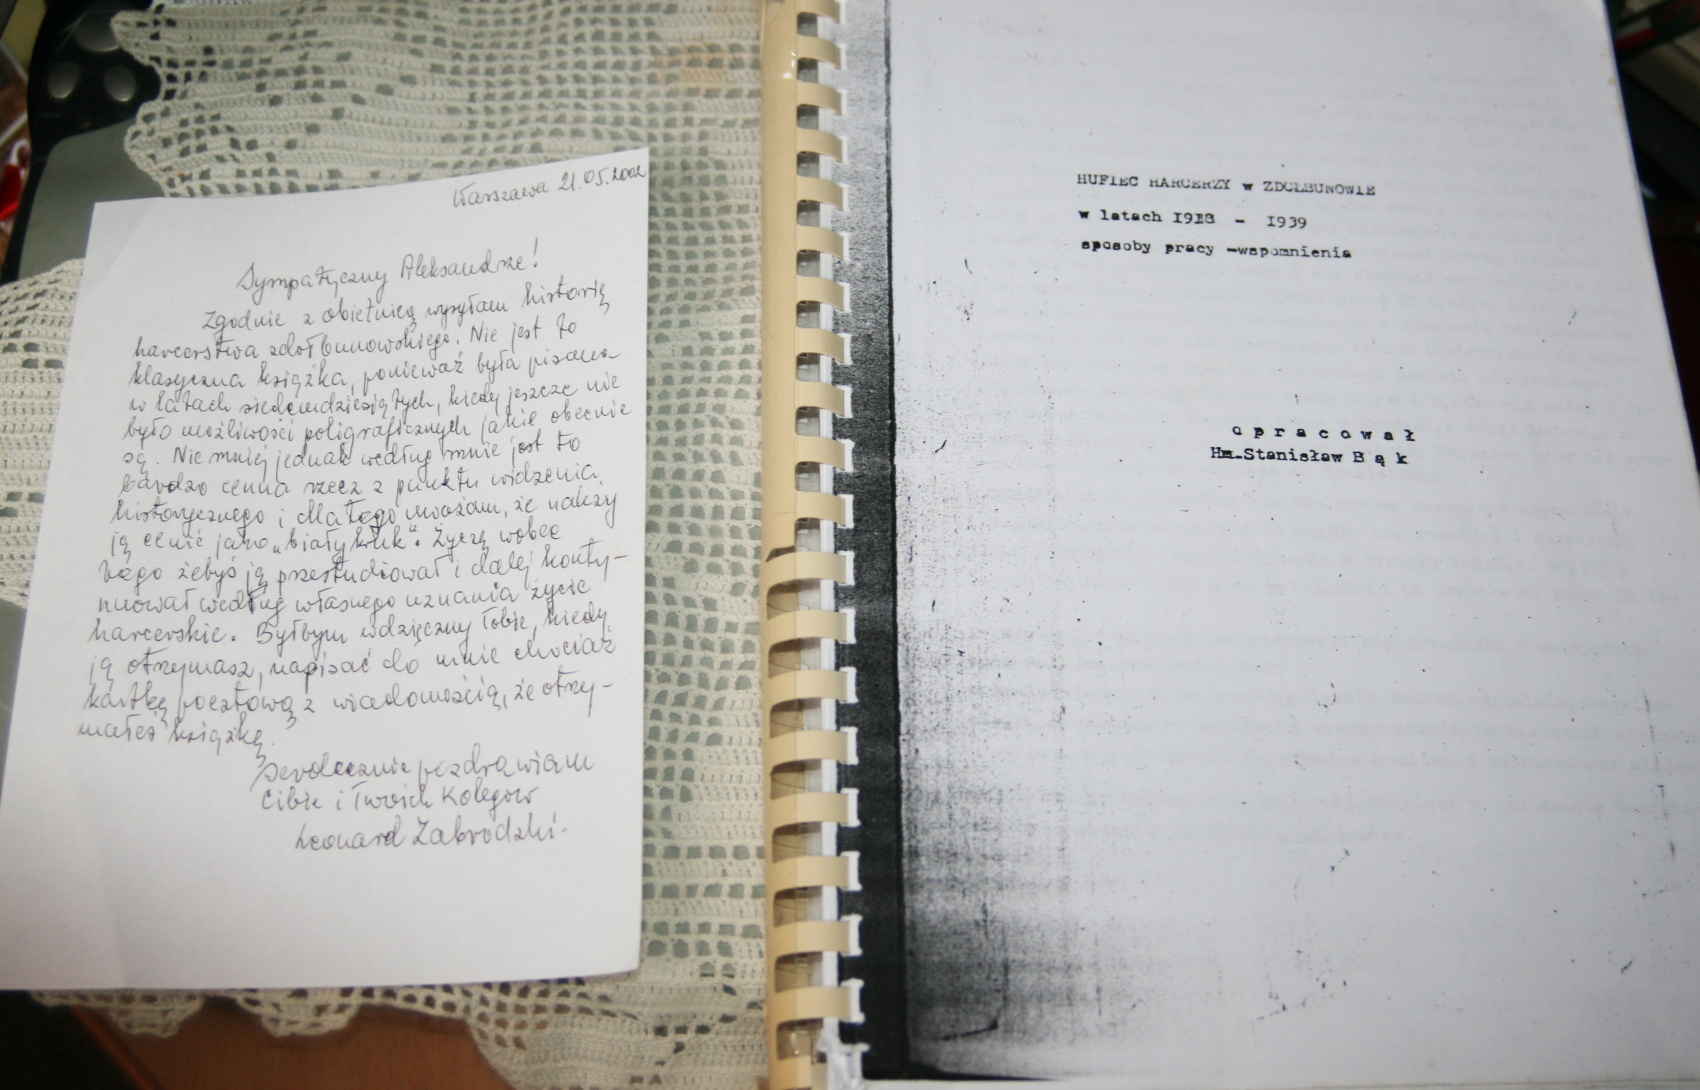 Warszawa 21.05.2002
Sympatyczny Aleksandrze!
Zgodnie z obietnicą wysyłam historię
harcerstwa zdołbunowskiego. Nie jest to
klasyczna książka, ponieważ była pisana
w latach siedemdziesiątych, kiedy jeszcze nie
było możliwości poligraficznych jakie obecnie
są. Nie mniej jednak według mnie jest to
bardzo cenna rzecz z punktu widzenia
historycznego i dlatego uważam, że należy
ją cenić jako „biały kruk". Życzę wobec
tego żebyś ją przestudiował i dalej konty-
nuował według własnego uznania życie
harcerskie. Byłbym wdzięczny Tobie, kiedy
ją otrzymasz, napisać do mnie chociaż
kartkę pocztową z wiadomością, że otrzy-
małeś książkę.
Serdecznie pozdrawiam
Ciebie i Twoich Kolegów
Leonard Zabrodzki.
HUFIEC HARCERZY w ZDOŁBUNOWIE
w latach - 1939
sposoby pracy -wspomnienia
o p r a c o w a ł
Hm.Stanisław B ą k